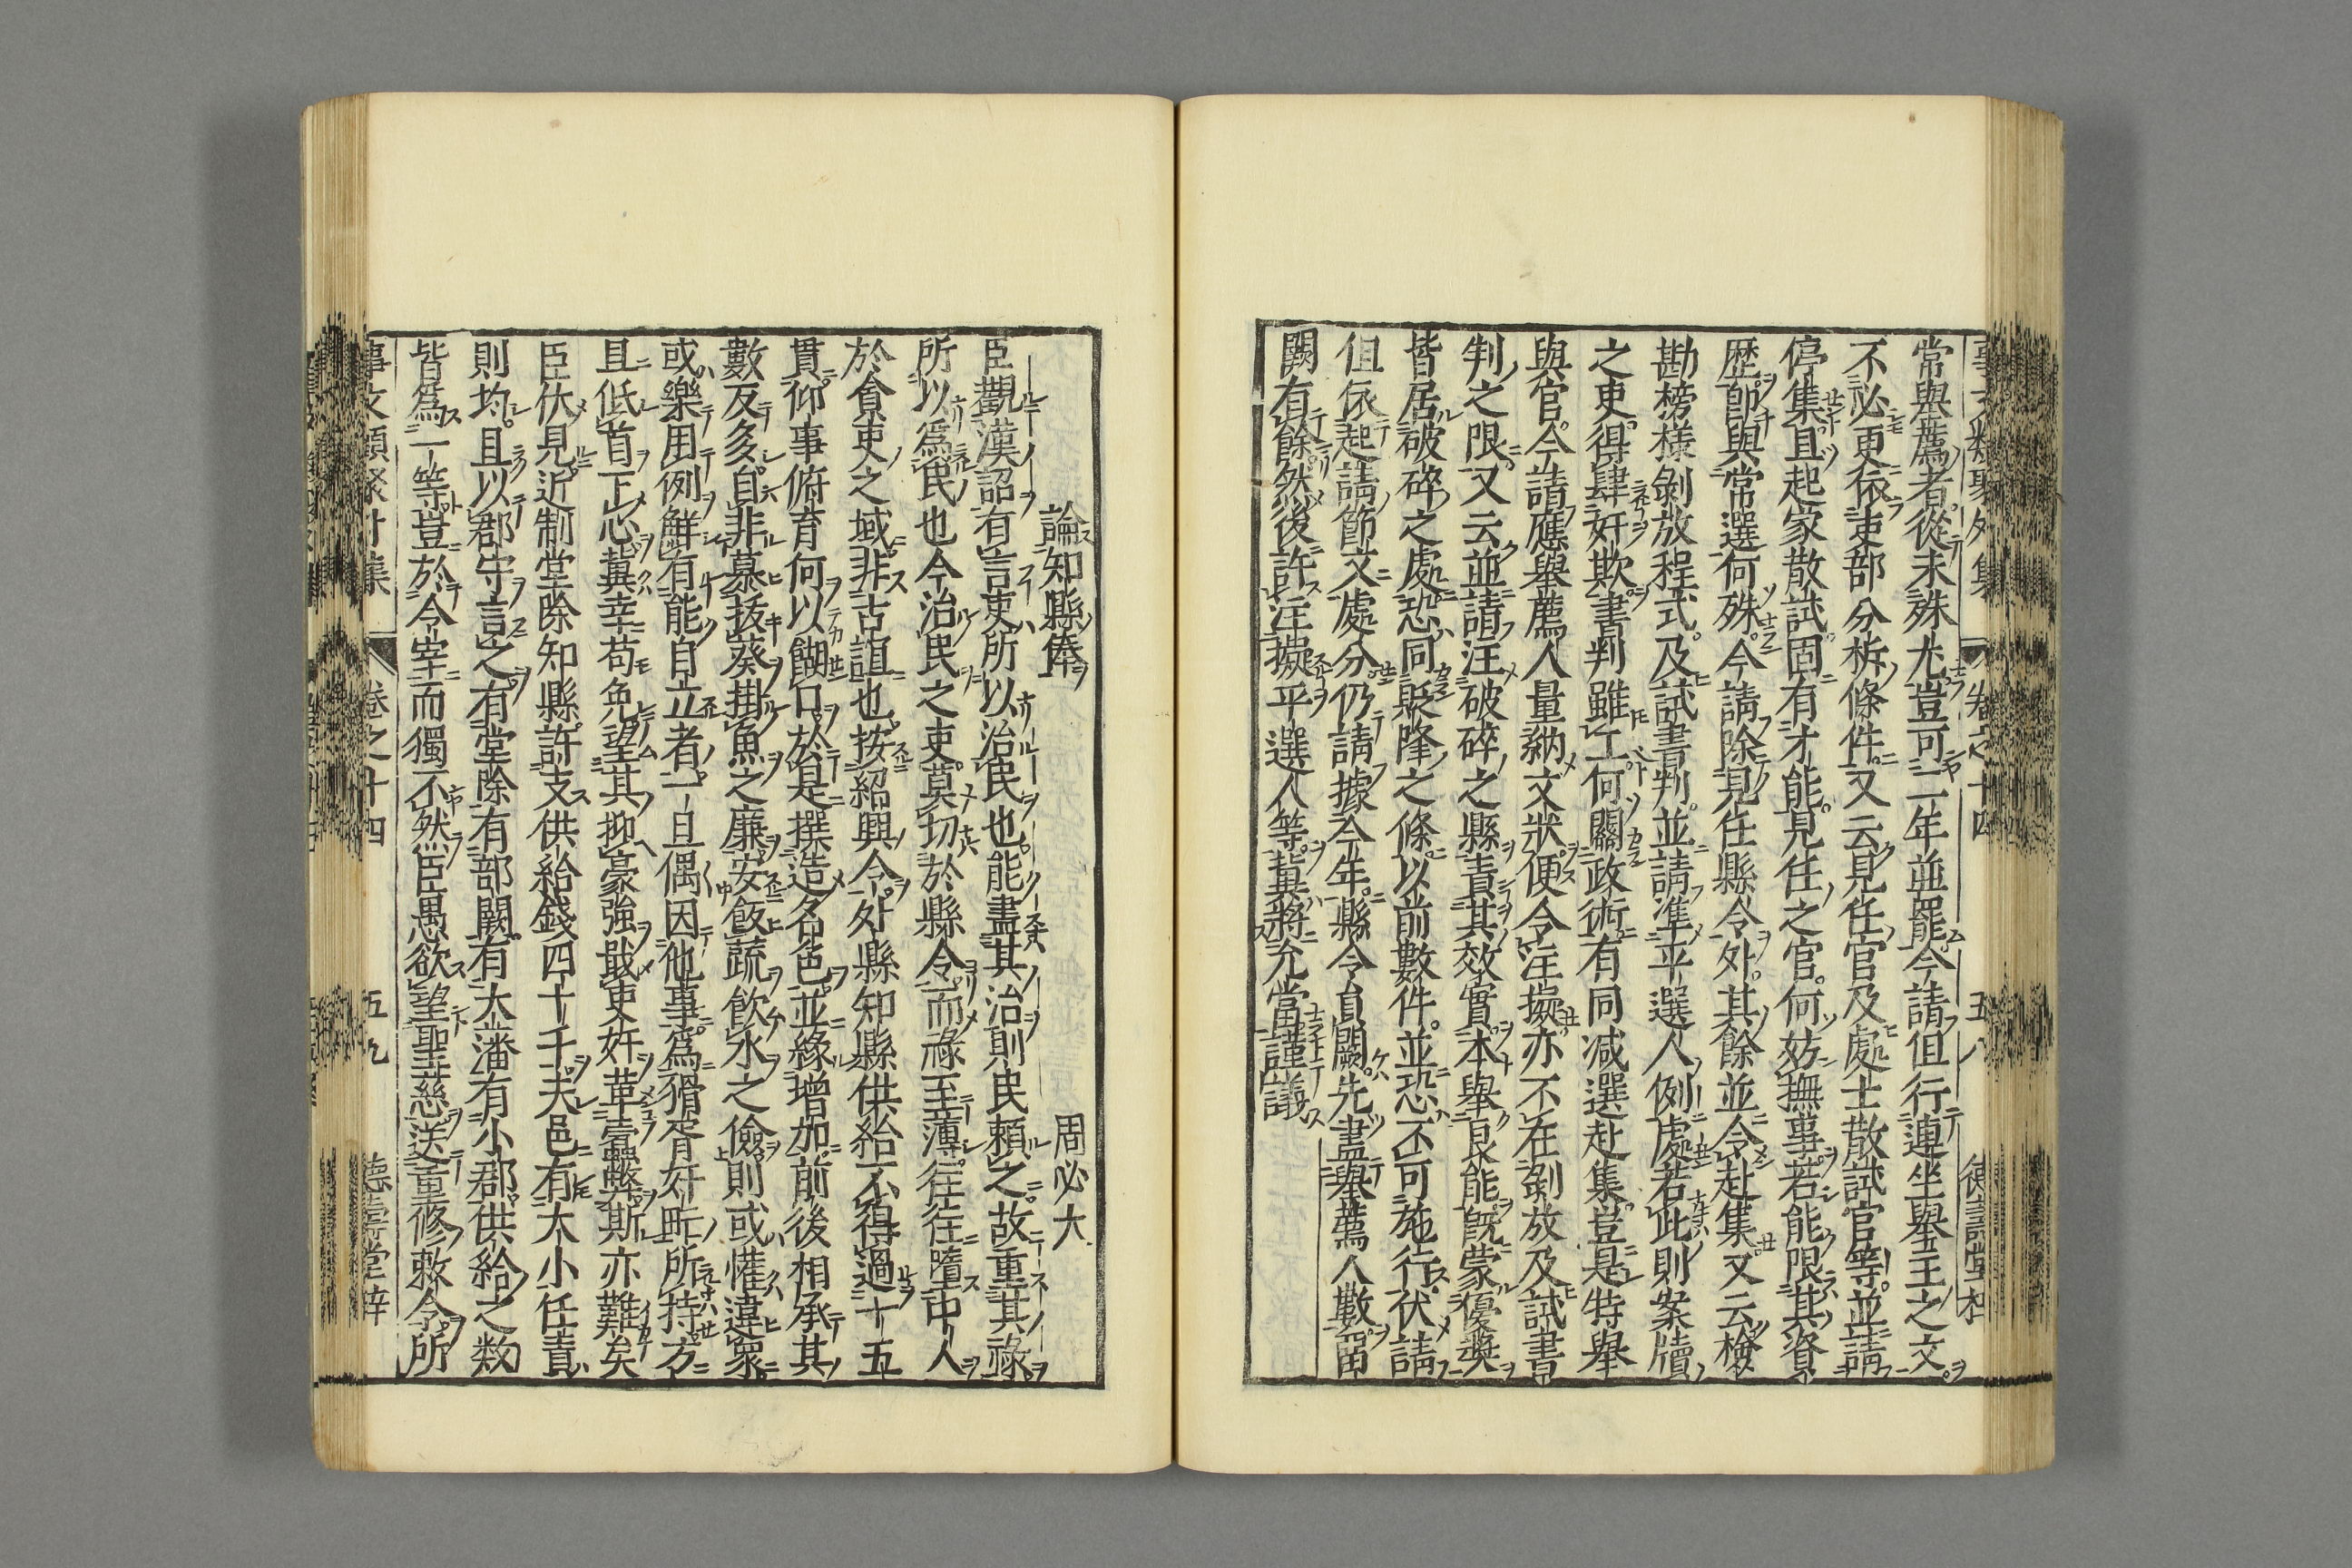 事文類聚外集 卷之十四 五八 德壽堂梓
常與薦者從未殊尤豈可二年並罷今請但行連坐舉主之文
不必更依吏部分析條件又云見任官及處士散試官等並請
停集且起家散試固有才能見任之官何妨撫事若能限其資
歷卽與常選何殊今請除見任縣令外其餘並令赴集又云檢
勘榜樣剝放程式及試書判並請準平選人例處若此則案牘
之吏得肆奸欺書判雖工何關政術有同減選赴集豈是特舉
與官今請應舉薦人量納文狀便令注擬亦不在剝放及試書
判之限又云並請注破碎之縣責其效實本舉良能旣蒙優獎
皆居破碎之處恐同貶降之條以前數件並恐不可施行伏請
但依起請節文處分仍請據今年縣令員闕先盡舉薦人數留
闕有餘然後許注擬平選人等冀將允當謹議
論知縣俸 周必大
臣觀漢詔有言吏所以治民也能盡其治則民賴之故重其祿
所以爲民也今治民之吏莫切於縣令而祿至薄往往墮中人
於貪吏之域非古誼也按紹興令外縣知縣供給不得過十五
貫仰事俯育何以餬口於是撰造名色並緣增加前後相承其
數反多自非慕拔葵掛魚之廉安飯蔬飮水之儉則或懼違衆
或樂用例鮮有能自立者一旦偶因他事爲猾胥奸甿所持方
且低首下心冀幸苟免望其抑豪強戢吏奸革蠹弊斯亦難矣
臣伏見近制堂除知縣許支供給錢四十千夫邑有大小任責
則均且以郡守言之有堂除有部闕有大藩有小郡供給之数
皆爲一等豈於令宰而獨不然臣愚欲望聖慈送重修敕令所
事文類聚外集 卷之十四 五九 德壽堂梓